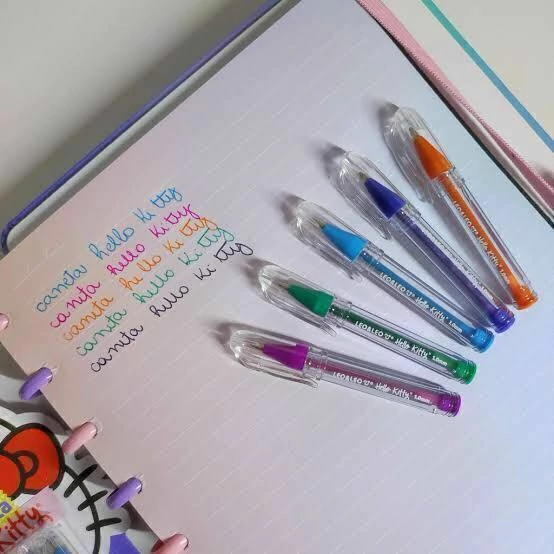 caneta hello kitty
caneta hello kitty
caneta hello kitty
caneta hello kitty
caneta hello kitty
LEO&LEO Hello Kitty 1.0mm
LEO&LEO
LEO&LEO Hello Kitty 1.0mm
LEO&LEO Hello Kitty 1.0mm
LEO&LEO Hello Kitty 1.0mm
Kitty